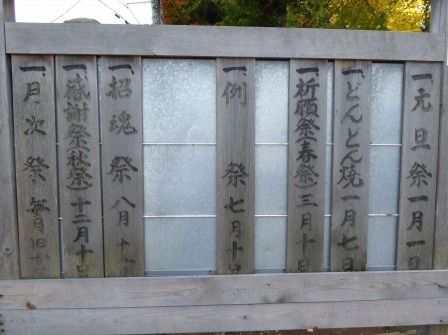 一、元旦祭 一月一日
一、どんどん焼 一月七日
一、祈願祭(春祭) 三月十日
一、例祭 七月十日
一、招魂祭 八月十
一、感謝祭(秋祭) 十二月十日
一、月次祭 毎月